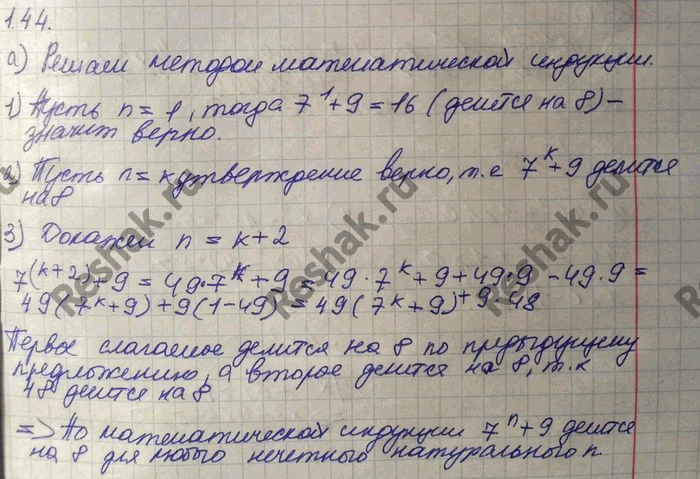 1.44.
а) Решаем методом математической индукции.
1) Пусть n = 1, тогда 7¹ + 9 = 16 (делится на 8) –
значит верно.
2) Пусть n = k утверждение верно, т.е 7ᵏ + 9 делится
на 8
3) Докажем n = k + 2
7^(k+2) + 9 = 49 · 7ᵏ + 9 = 49 · 7ᵏ + 9 + 49 · 9 – 49 · 9 =
49 (7ᵏ + 9) + 9 (1 – 49) = 49 (7ᵏ + 9) + 9 · 48
Первое слагаемое делится на 8 по предыдущему
предложению, а второе делится на 8, т.к
48 делится на 8
=> По математической индукции 7ⁿ + 9 делится
на 8 для любого нечетного натурального n.
Reshak.ru
Reshak.ru
Reshak.ru
Reshak.ru